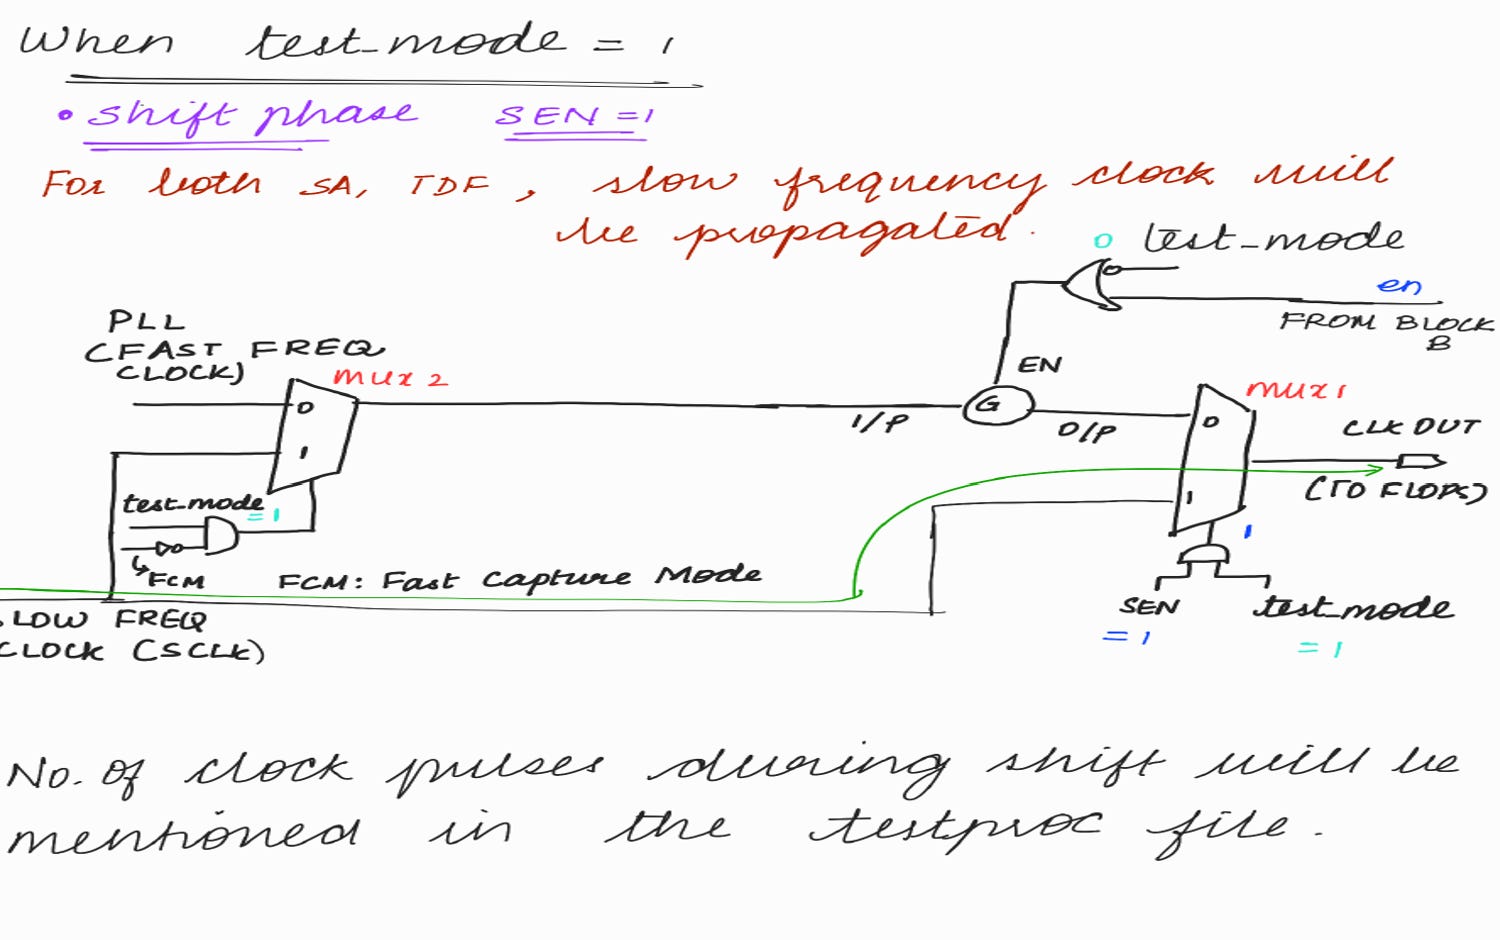 When test_mode = 1
• shift phase SEN = 1
For both SA, TDF, slow frequency clock will
be propagated.
0 test_mode
en
FROM BLOCK
B
PLL
(FAST FREQ
CLOCK)
mux 2
EN
G
I/P
O/P
mux 1
0
1
0
1
CLK OUT
(TO FLOPS)
test_mode
= 1
FCM
FCM: Fast Capture Mode
1
SEN
= 1
test_mode
= 1
LOW FREQ
CLOCK (SCLK)
No. of clock pulses during shift will be
mentioned in the testproc file.